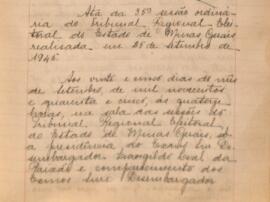 Ata da 35ª sessão ordiná-
ria do Tribunal Regional Elei-
toral do Estado de Minas Gerais
realizada em 25 de setembro de
1945
Aos vinte e cinco dias do mês
de setembro, de mil novecentos
e quarenta e cinco, ás quatorze
horas, na sala das sessões do
Tribunal Regional Eleitoral
do Estado de Minas Gerais, sob
a presidência do Exmo. Sr. De-
sembargador
Leal da
e comparecimento dos
Desembargador